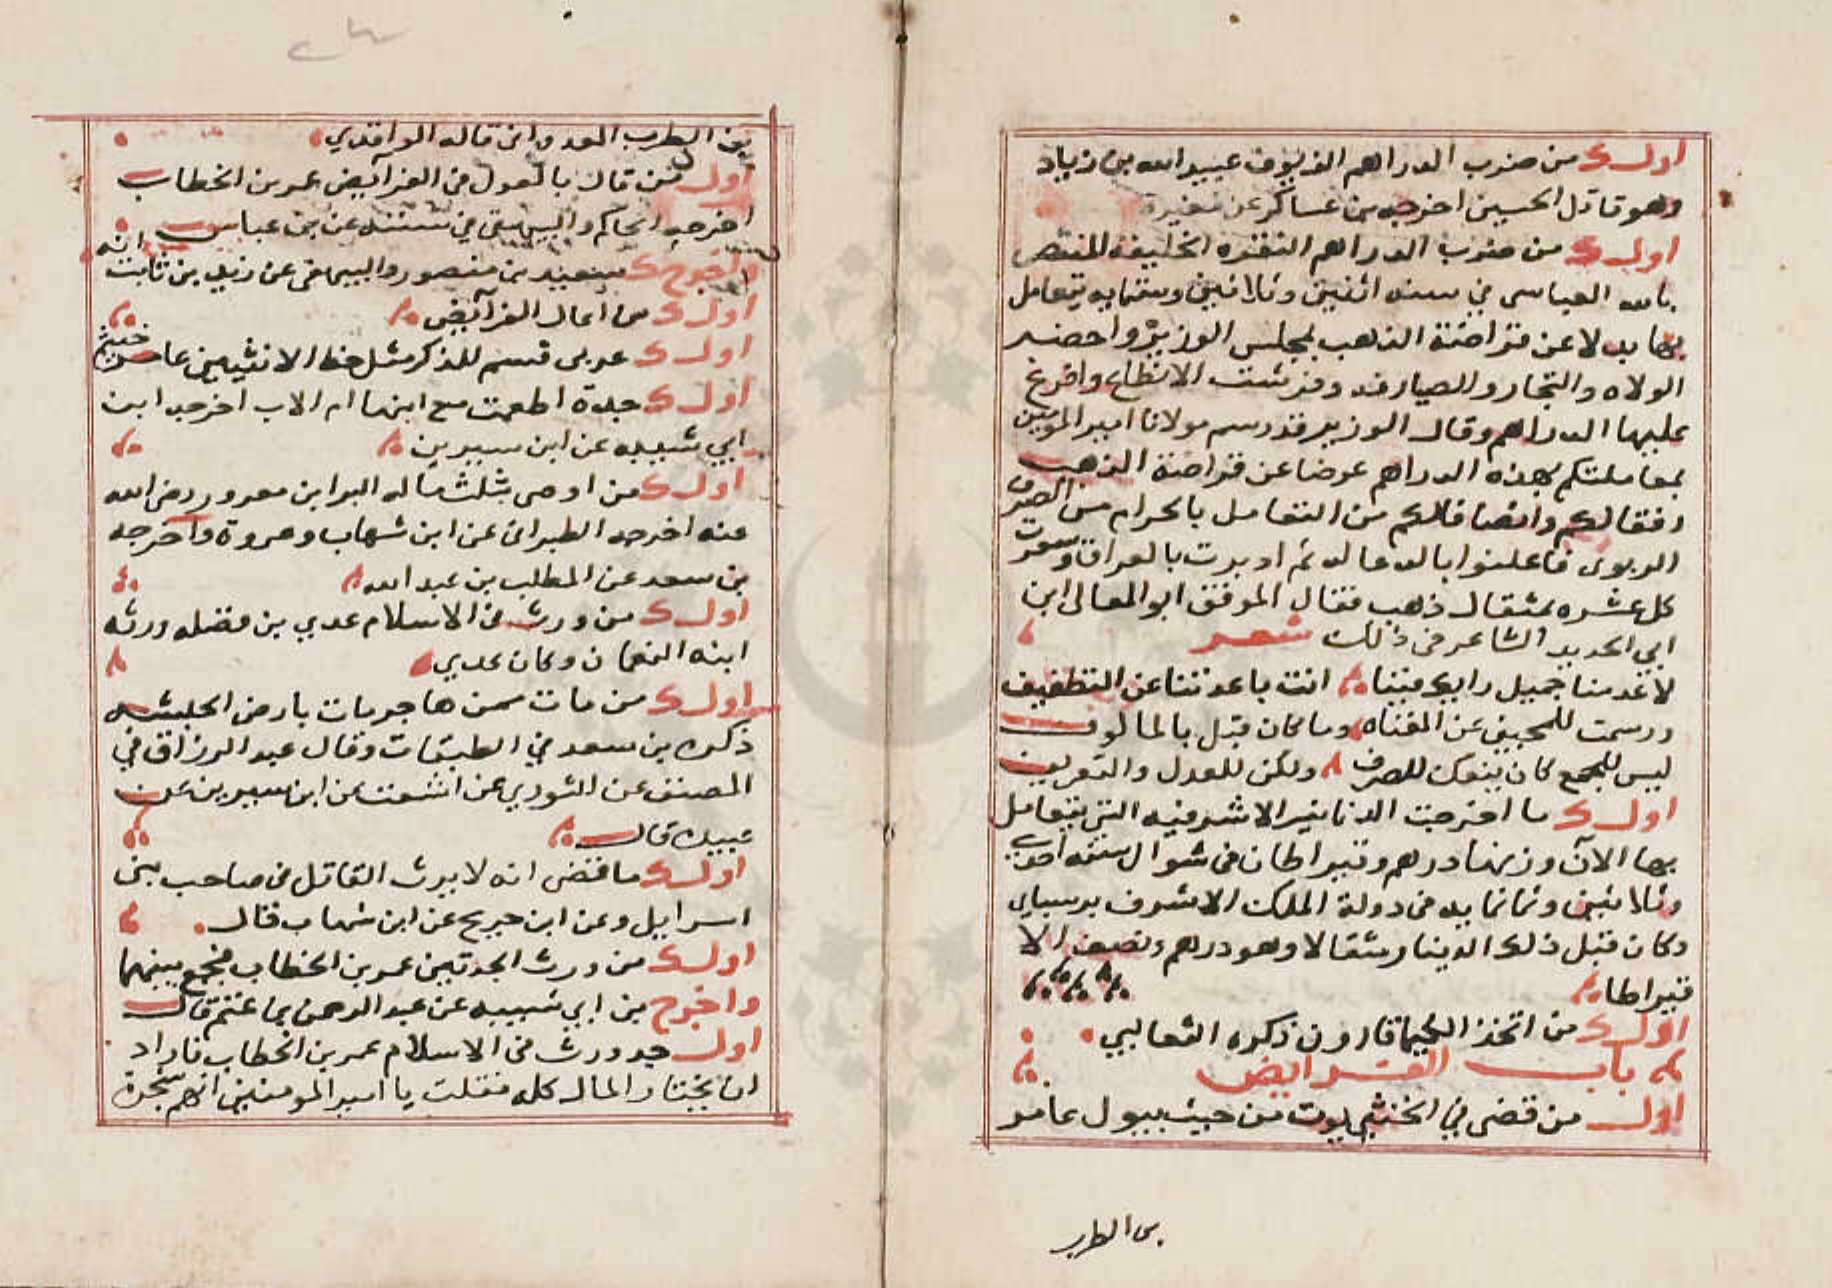 اول من ضرب الدراهم الزيوف عبيد الله بن زياد
وهو قاتل الحسين اخرجه بن عساكر عن مغيرة
اول من ضرب الدراهم النقره الخليفة المنتصر
بالله العباسي في سنه اثنين وثلاثين وستمايه يتعامل
بها بدلا عن قراضة الذهب بمجلس الوزير واحضر
الولاه والتجار والصيارفه وفرشت الانطاع وافرغ
عليها الدراهم وقال الوزير قد رسم مولانا امير المومنين
بمعاملتكم بهذه الدراهم عوضا عن قراضة الذهب
رفقا لكم وانقاذا لكم من التعامل بالحرام من الصرف
الربوي فاعلنوا بالدعا له ثم اديرت بالعراق وسعرت
كل عشره بمثقال ذهب فقال الموفق ابو المعالي ابن
ابي الحديد الشاعر في ذلك شعر
لا عدمنا جميل رايك فينا انت باعدتنا عن التطفيف
ورسمت للمجيني عن وما كان قبل بالمالوف
ليس للجمع كان ينفك للصرف ولكن للعدل والتعريف
اول ما اخرجت الدنانير الاشرفيه التي يتعامل
بها الآن وزنها درهم وقيراطان في شوال سنه احدى
وثلاثين وثمانمايه في دولة الملك الاشرف برسباي
وكان قبل ذلك الدينار مثقالا وهو درهم ونصف الا
قيراطا
اول من اتخذ الكيميا قارون ذكره الثعالبي
باب الفرايض
اول من قضى في الخنثى يورث من حيث يبول عامر
بن الظرب
بن الظرب العدواني قاله الواقدي
اول من قال بالعول في الفرآيض عمر بن الخطاب
اخرجه الحاكم والبيهقي في سننه عن بن عباس
واخرج سعيد بن منصور والبيهقي عن زيد بن ثابت انه
اول من اعال الفرآيض
اول عربي قسم للذكر مثل حظ الانثيين عامر بن خثيم
اول جدة اطعمت مع ابنها ام الاب اخرجه ابن
ابي شيبه عن ابن سيرين
اول من اوصى بثلث ماله البرا بن معرور رضي الله
عنه اخرجه الطبراني عن ابن شهاب وعروة واخرجه
بن سعد عن المطلب بن عبد الله
اول من ورث في الاسلام عدي بن فضله ورثه
ابنه النعمان وكان عدي
اول من مات ممن هاجر مات بارض الحبشه
ذكره بن سعد في الطبقات وقال عبد الرزاق في
المصنف عن الثوري عن اشعث عن ابن سيرين عن
عبيدة قال
اول ما قضى انه لا يرث القاتل في صاحب بني
اسراييل وعن ابن جريج عن ابن شهاب قال
اول من ورث الجدتين عمر بن الخطاب فجمع بينهما
واخرج بن ابي شيبه عن عبد الرحمن بن غنم قال
اول جد ورث في الاسلام عمر بن الخطاب فاراد
ان يحتاز المال كله فقلت يا امير المومنين انهم شجرة